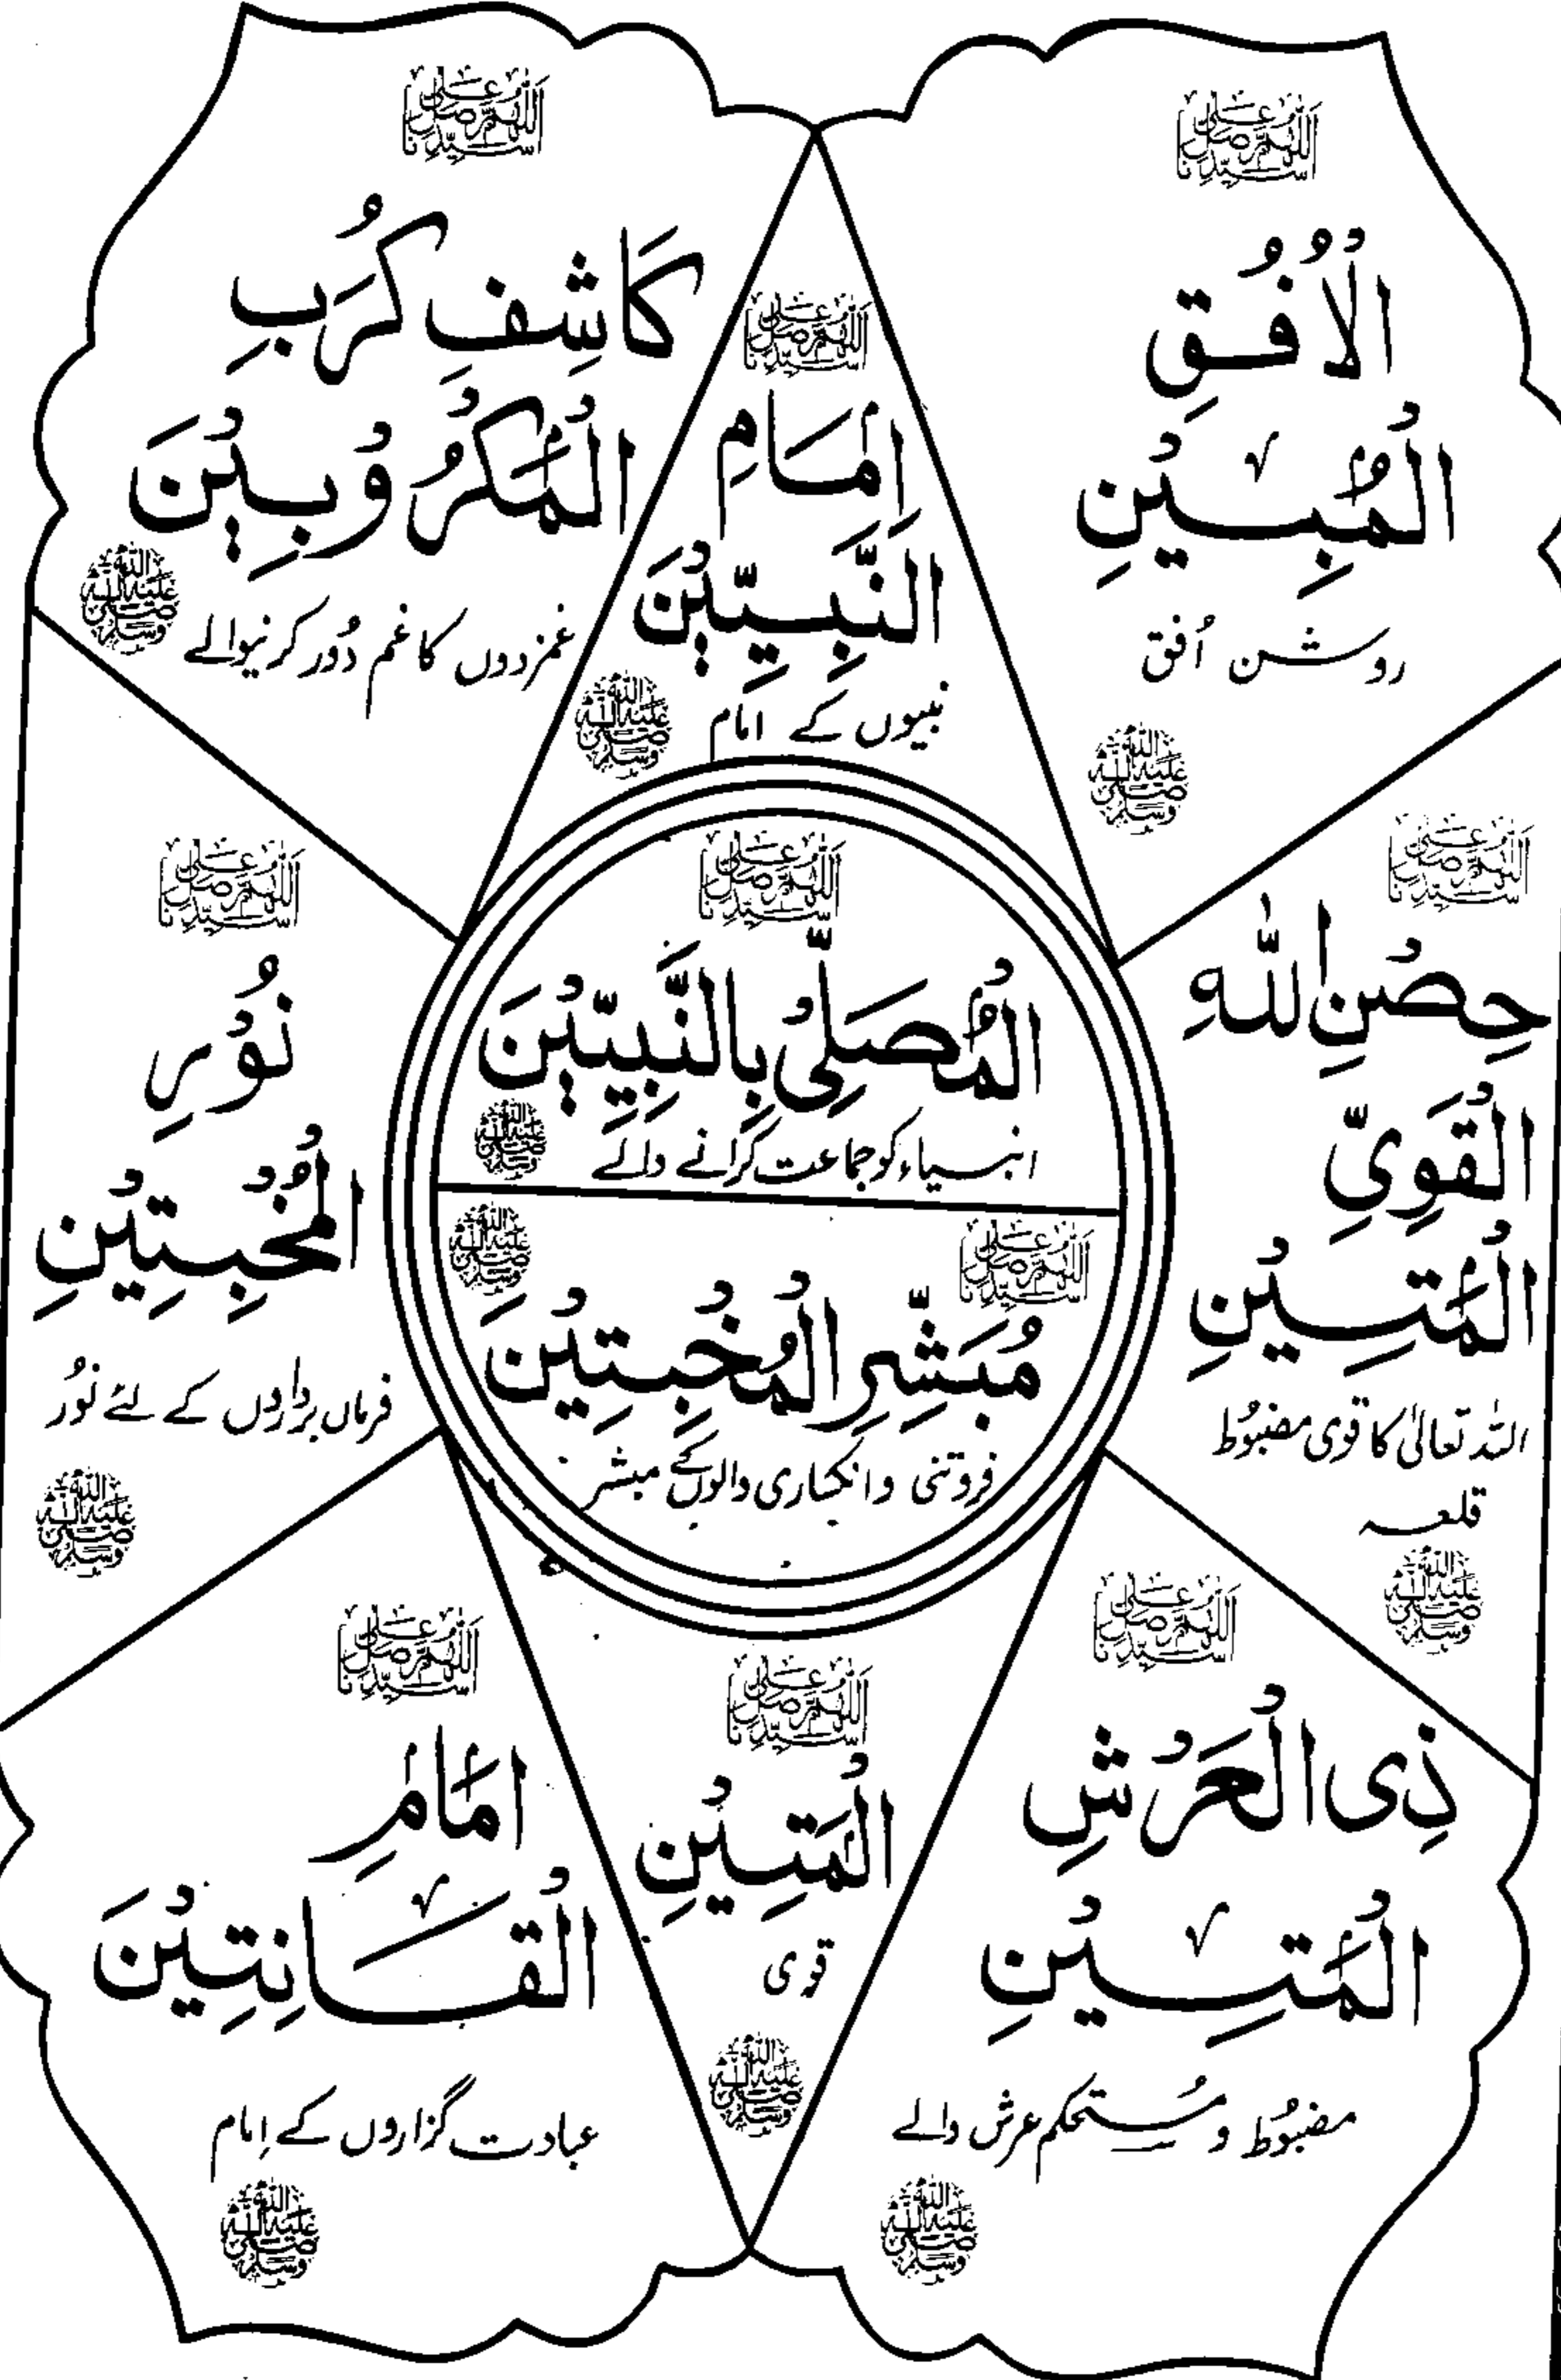 اللهم صل على سيدنا
الْاُفُقِ
الْمُبِیْنِ
روشن اُفق
صلى الله عليه وسلم
اللهم صل على سيدنا
اِمَامِ
النَّبِیّیْنَ
نبیوں کے امام
صلى الله عليه وسلم
اللهم صل على سيدنا
کَاشِفِ کُرَبِ
الْمَکْرُوْبِیْنَ
غمزدوں کا غم دُور کرنیوالے
صلى الله عليه وسلم
اللهم صل على سيدنا
حِصْنِ اللّٰهِ
الْقَوِیِّ
الْمَتِیْنِ
اللہ تعالیٰ کا قوی مضبُوط
قلعہ
صلى الله عليه وسلم
اللهم صل على سيدنا
الْمُصَلِّیْ بِالنَّبِیّیْنَ
انبیاء کو جماعت کرانے والے
صلى الله عليه وسلم
اللهم صل على سيدنا
مُبَشِّرِ الْمُخْبِتِیْنَ
فروتنی و انکساری والوں کے مبشر
صلى الله عليه وسلم
اللهم صل على سيدنا
نُوْرِ
الْمُخْبِتِیْنِ
فرماں برداروں کے لئے نُور
صلى الله عليه وسلم
اللهم صل على سيدنا
ذِی الْعَرْشِ
الْمَتِیْنِ
مضبُوط و مُستحکم عرش والے
صلى الله عليه وسلم
اللهم صل على سيدنا
الْمَتِیْنِ
قوی
صلى الله عليه وسلم
اللهم صل على سيدنا
اِمَامِ
الْقَانِتِیْنَ
عبادت گزاروں کے اِمام
صلى الله عليه وسلم